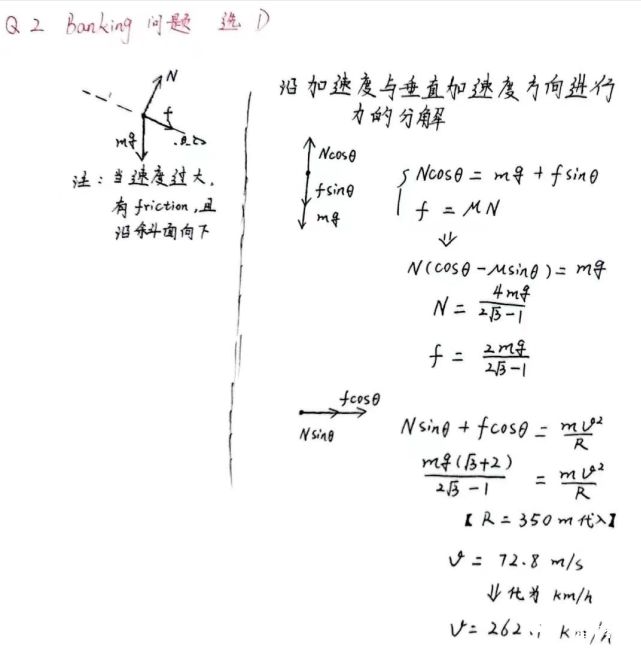 Q2 Banking 问题 选 D
N
f
mg
注：当速度过大，
有 friction，且
沿斜面向下
沿加速度与垂直加速度方向进行
力的分解
Ncosθ
fsinθ
mg
Ncosθ = mg + fsinθ
f = μN
⇓
N(cosθ - μsinθ) = mg
N = 4mg / (2√3 - 1)
f = 2mg / (2√3 - 1)
fcosθ
Nsinθ
Nsinθ + fcosθ = mv² / R
mg(√3+2) / (2√3 - 1) = mv² / R
【R = 350m 代入】
v = 72.8 m/s
⇓ 化为 km/h
v = 262.1 km/h